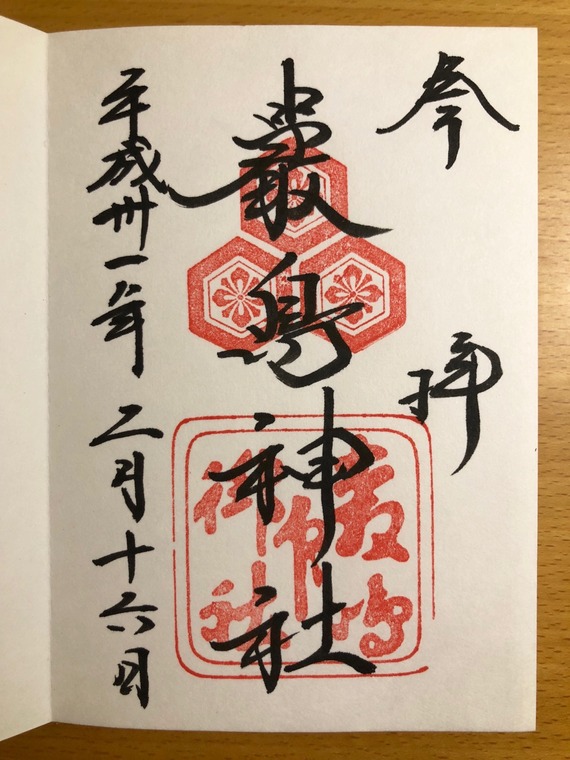 奉拝
嚴島神社
平成卅一年二月十六日
嚴嶋
神社